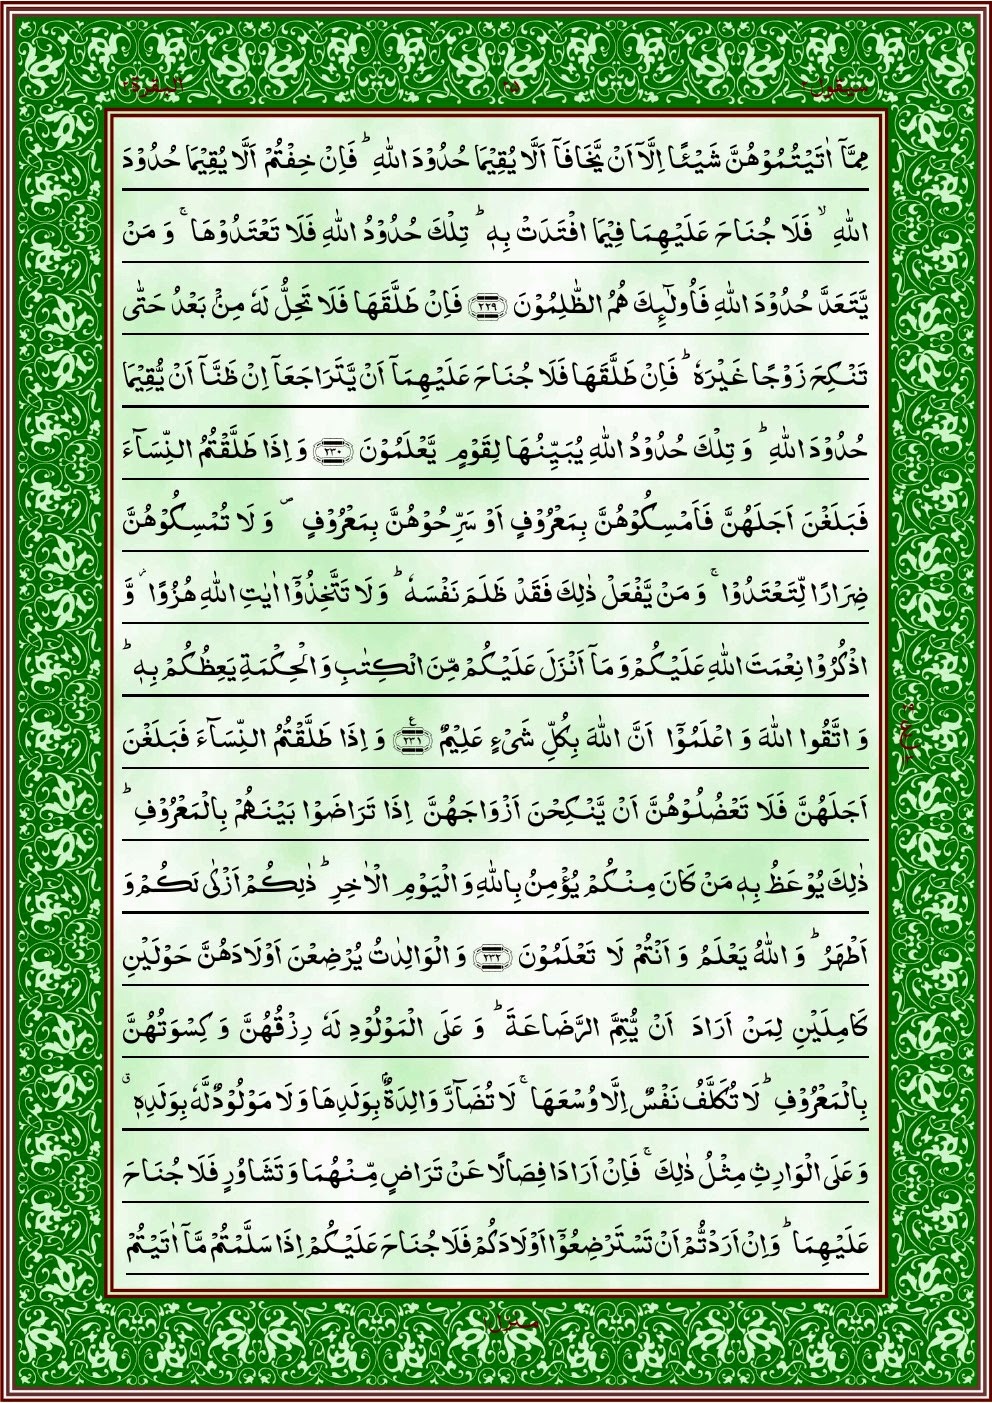 سیقول ۲ ۳۵ البقرة ۲
مِمَّاۤ اٰتَیْتُمُوْهُنَّ شَیْـًٔا اِلَّاۤ اَنْ یَّخَافَاۤ اَلَّا یُقِیْمَا حُدُوْدَ اللّٰهِ ؕ فَاِنْ خِفْتُمْ اَلَّا یُقِیْمَا حُدُوْدَ
اللّٰهِ ۙ فَلَا جُنَاحَ عَلَیْهِمَا فِیْمَا افْتَدَتْ بِهٖ ؕ تِلْكَ حُدُوْدُ اللّٰهِ فَلَا تَعْتَدُوْهَا ۚ وَ مَنْ
یَّتَعَدَّ حُدُوْدَ اللّٰهِ فَاُولٰٓىِٕكَ هُمُ الظّٰلِمُوْنَ ﴿۲۲۹﴾ فَاِنْ طَلَّقَهَا فَلَا تَحِلُّ لَهٗ مِنْۢ بَعْدُ حَتّٰی
تَنْكِحَ زَوْجًا غَیْرَهٗ ؕ فَاِنْ طَلَّقَهَا فَلَا جُنَاحَ عَلَیْهِمَاۤ اَنْ یَّتَرَاجَعَاۤ اِنْ ظَنَّاۤ اَنْ یُّقِیْمَا
حُدُوْدَ اللّٰهِ ؕ وَ تِلْكَ حُدُوْدُ اللّٰهِ یُبَیِّنُهَا لِقَوْمٍ یَّعْلَمُوْنَ ﴿۲۳۰﴾ وَ اِذَا طَلَّقْتُمُ النِّسَآءَ
فَبَلَغْنَ اَجَلَهُنَّ فَاَمْسِكُوْهُنَّ بِمَعْرُوْفٍ اَوْ سَرِّحُوْهُنَّ بِمَعْرُوْفٍ ۪ وَ لَا تُمْسِكُوْهُنَّ
ضِرَارًا لِّتَعْتَدُوْا ۚ وَ مَنْ یَّفْعَلْ ذٰلِكَ فَقَدْ ظَلَمَ نَفْسَهٗ ؕ وَ لَا تَتَّخِذُوْۤا اٰیٰتِ اللّٰهِ هُزُوًا ؗ وَّ
اذْكُرُوْا نِعْمَتَ اللّٰهِ عَلَیْكُمْ وَ مَاۤ اَنْزَلَ عَلَیْكُمْ مِّنَ الْكِتٰبِ وَ الْحِكْمَةِ یَعِظُكُمْ بِهٖ ؕ
وَ اتَّقُوا اللّٰهَ وَ اعْلَمُوْۤا اَنَّ اللّٰهَ بِكُلِّ شَیْءٍ عَلِیْمٌ ﴿۲۳۱﴾ وَ اِذَا طَلَّقْتُمُ النِّسَآءَ فَبَلَغْنَ
اَجَلَهُنَّ فَلَا تَعْضُلُوْهُنَّ اَنْ یَّنْكِحْنَ اَزْوَاجَهُنَّ اِذَا تَرَاضَوْا بَیْنَهُمْ بِالْمَعْرُوْفِ ؕ
ذٰلِكَ یُوْعَظُ بِهٖ مَنْ كَانَ مِنْكُمْ یُؤْمِنُ بِاللّٰهِ وَ الْیَوْمِ الْاٰخِرِ ؕ ذٰلِكُمْ اَزْكٰی لَكُمْ وَ
اَطْهَرُ ؕ وَ اللّٰهُ یَعْلَمُ وَ اَنْتُمْ لَا تَعْلَمُوْنَ ﴿۲۳۲﴾ وَ الْوَالِدٰتُ یُرْضِعْنَ اَوْلَادَهُنَّ حَوْلَیْنِ
كَامِلَیْنِ لِمَنْ اَرَادَ اَنْ یُّتِمَّ الرَّضَاعَةَ ؕ وَ عَلَی الْمَوْلُوْدِ لَهٗ رِزْقُهُنَّ وَ كِسْوَتُهُنَّ
بِالْمَعْرُوْفِ ؕ لَا تُكَلَّفُ نَفْسٌ اِلَّا وُسْعَهَا ۚ لَا تُضَآرَّ وَالِدَةٌۢ بِوَلَدِهَا وَ لَا مَوْلُوْدٌ لَّهٗ بِوَلَدِهٖ ۗ
وَ عَلَی الْوَارِثِ مِثْلُ ذٰلِكَ ۚ فَاِنْ اَرَادَا فِصَالًا عَنْ تَرَاضٍ مِّنْهُمَا وَ تَشَاوُرٍ فَلَا جُنَاحَ
عَلَیْهِمَا ؕ وَ اِنْ اَرَدْتُّمْ اَنْ تَسْتَرْضِعُوْۤا اَوْلَادَكُمْ فَلَا جُنَاحَ عَلَیْكُمْ اِذَا سَلَّمْتُمْ مَّاۤ اٰتَیْتُمْ
منزل ۱